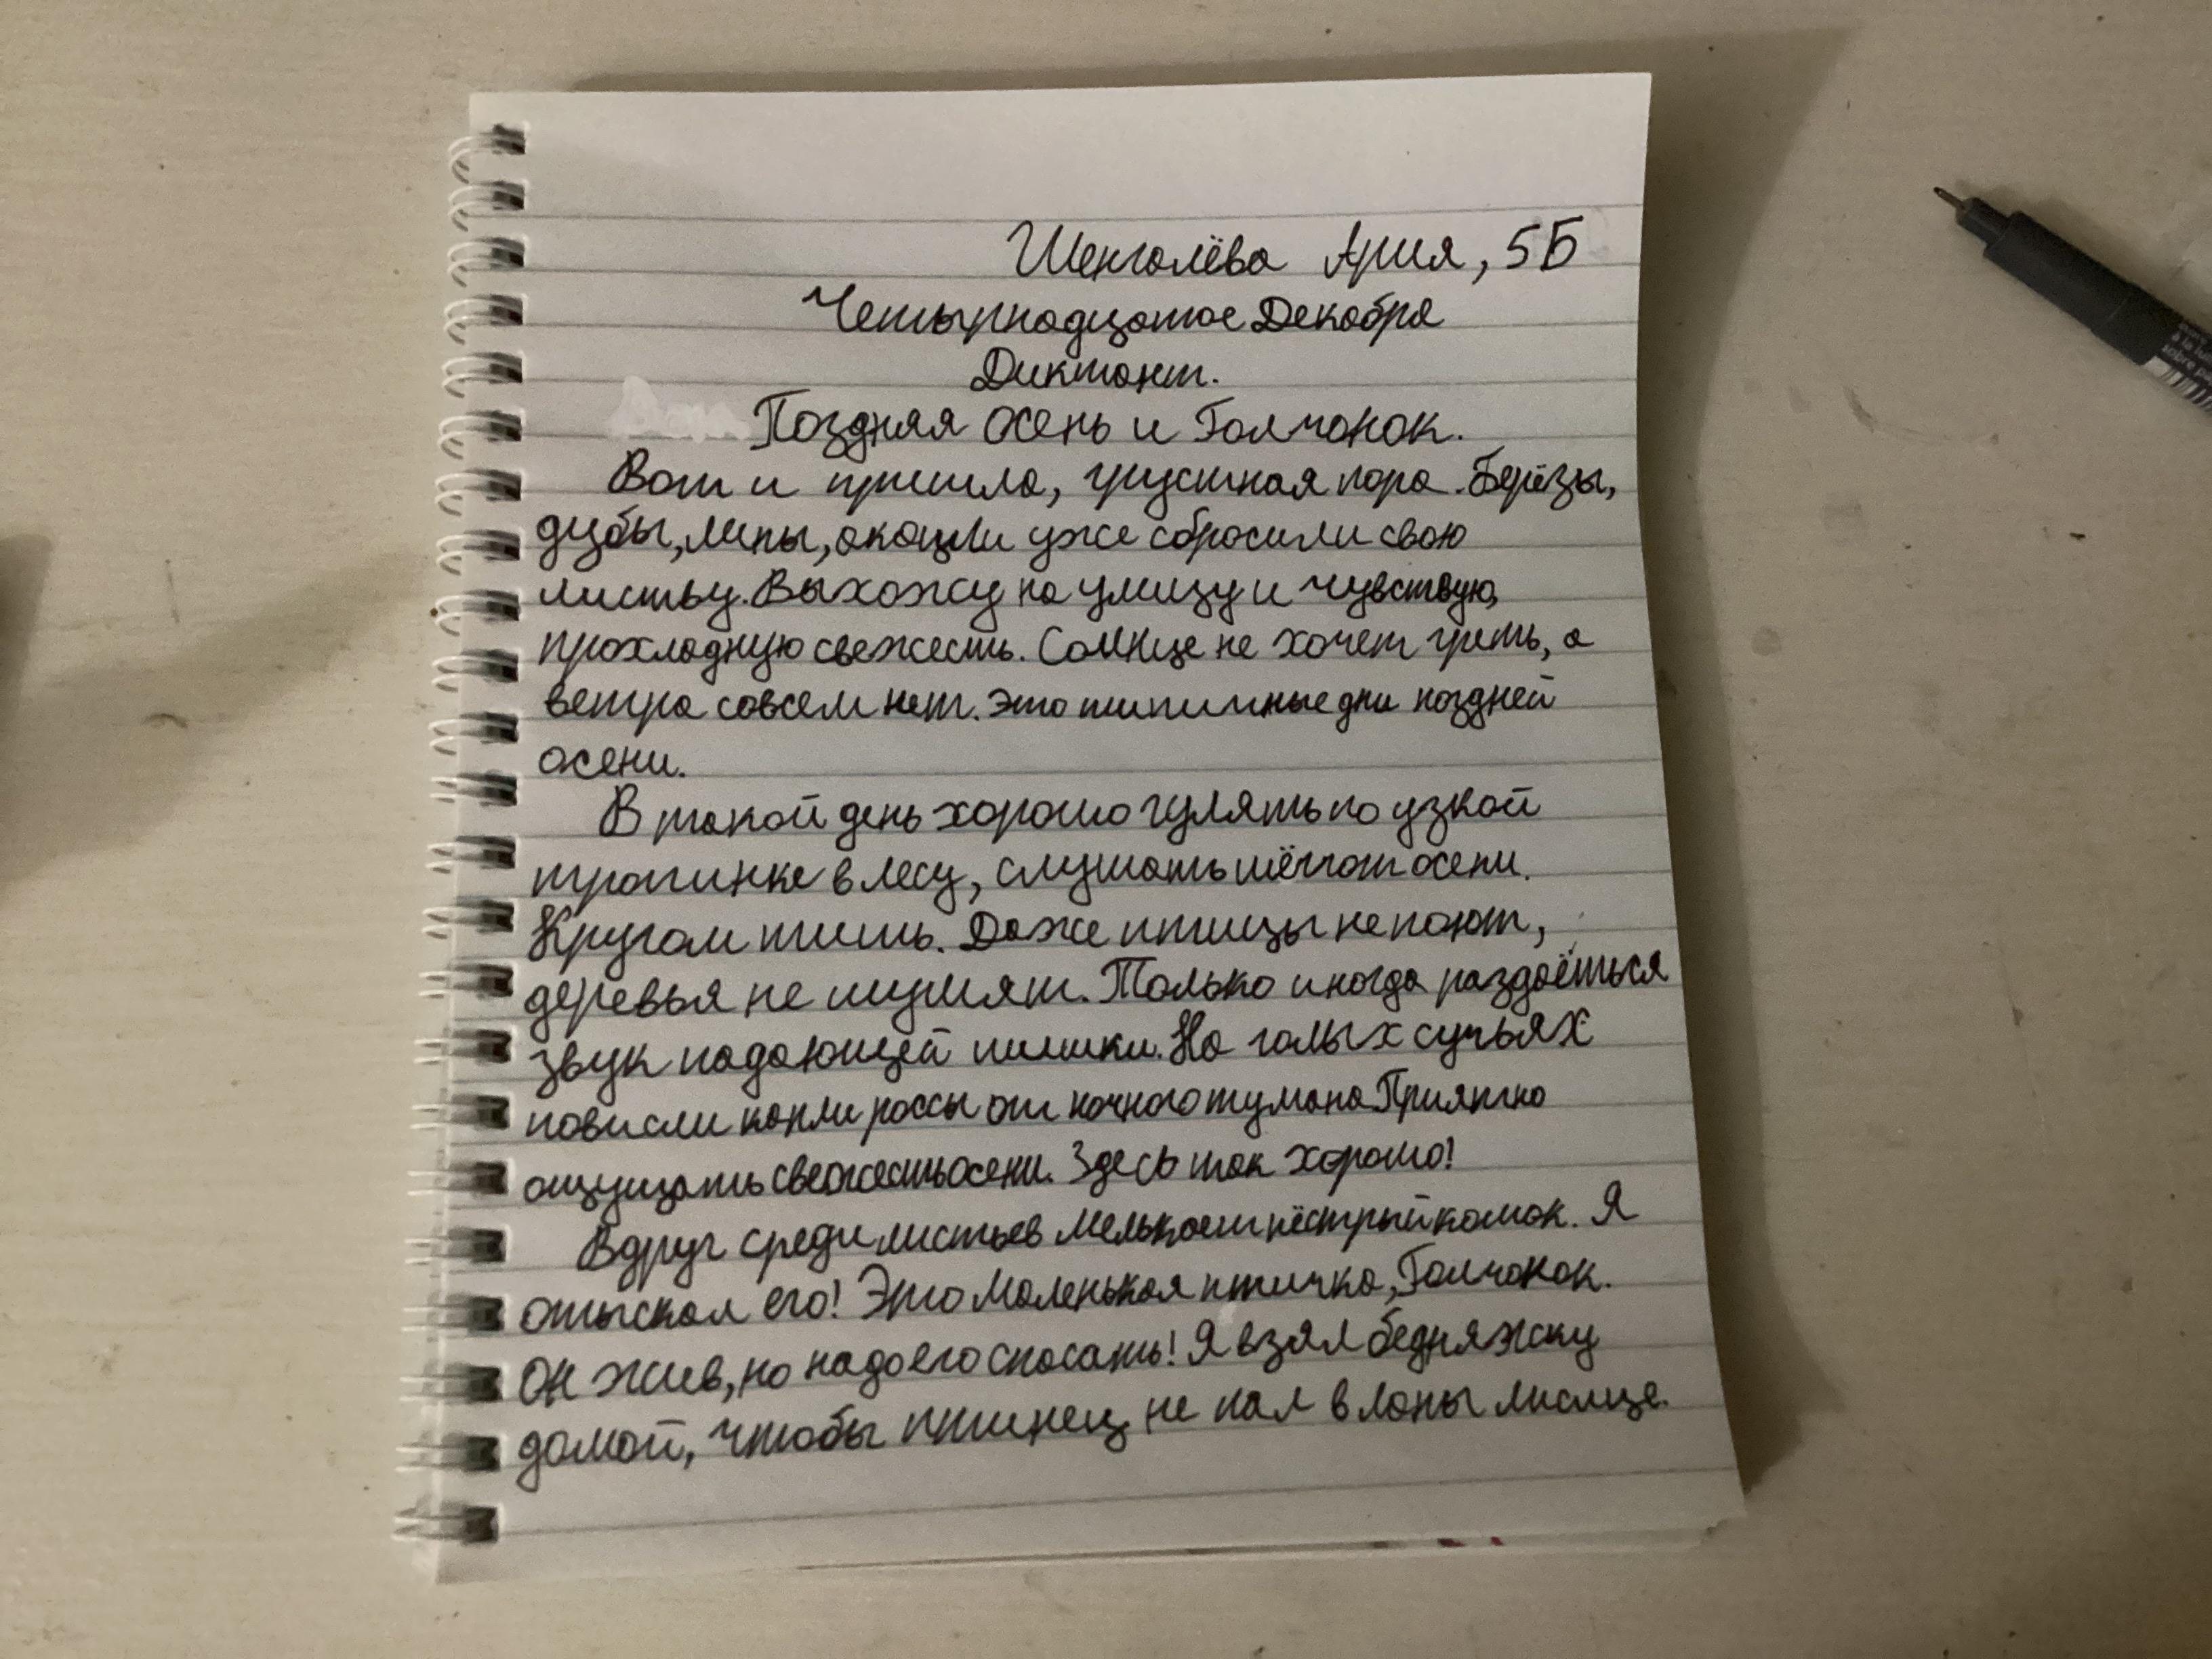 Шенгалёва Ария, 5Б
Четырнадцатое Декабря
Диктант.
Поздняя осень и Галчонок.
Вот и пришла, грустная пора. Берёзы,
дубы, липы, акации уже сбросили свою
листву. Выхожу на улицу и чувствую,
прохладную свежесть. Солнце не хочет греть, а
ветра совсем нет. Это типичные дни поздней
осени.
В такой день хорошо гулять по узкой
тропинке в лесу, слушать шёпот осени.
Кругом тишь. Даже птицы не поют,
деревья не шумят. Только иногда раздаёться
звук падающей шишки. На голых сучьях
повисли капли россы от ночного тумана Приятно
ощущать свежесть осени. Здесь так хорошо!
Вдруг среди листьев мелькает пёстрый комок. Я
отыскал его! Это маленькая птичка, Галчонок.
Он жив, но надо его спасать! Я взял бедняжку
домой, чтобы птинец не пал в лапы лисице.